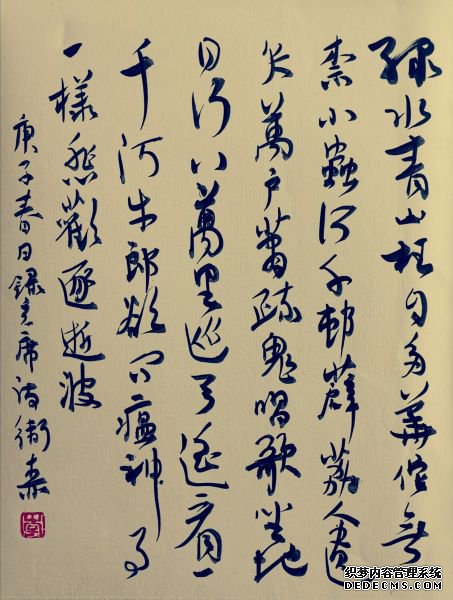 绿水青山枉自多華佗無
奈小蟲何千邨薜荔人遗
矢萬户蕭疏鬼唱歌坐地
日行八萬里巡天遥看一
千河牛郎欲问瘟神事
一樣悲歡逐逝波
庚子春日録主席诗衛
织梦内容管理系统
DEDECMS.COM